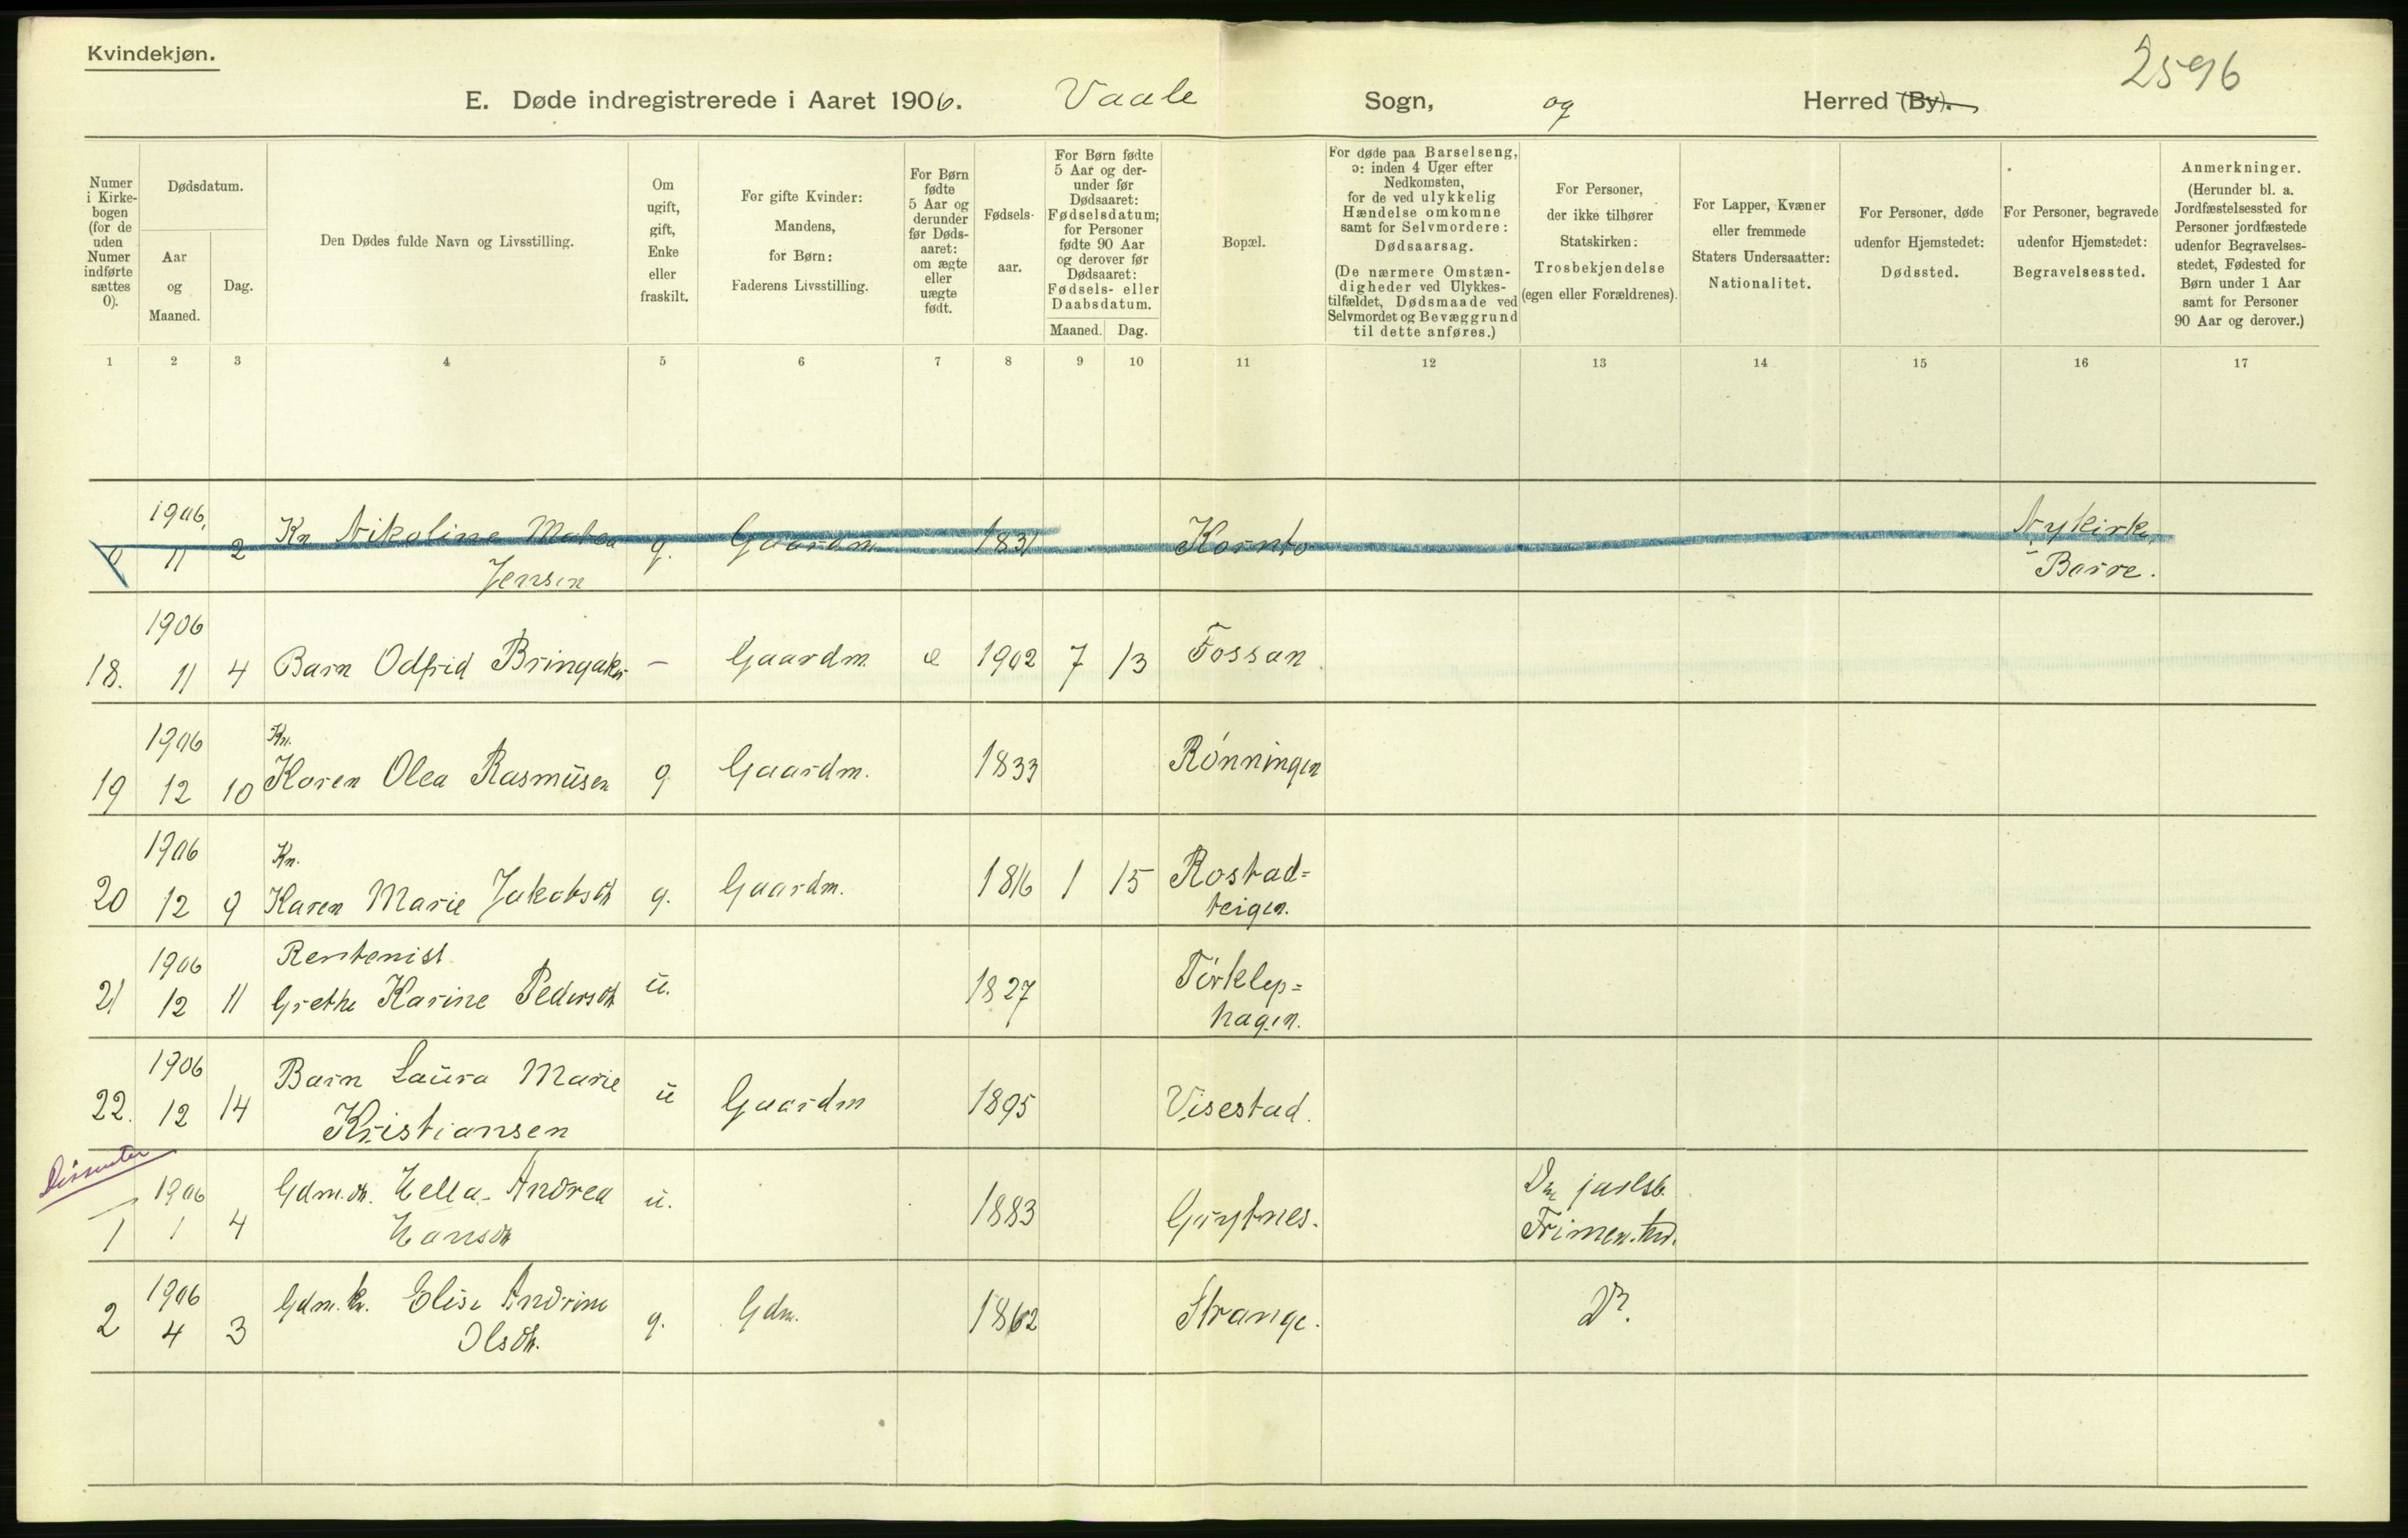 Kvindekjøn.
2596
E. Døde indregistrerede i Aaret 1906. Vaale Sogn, og Herred (By).
Numer i Kirkebogen (for de uden Numer indførte sættes 0).
Dødsdatum.
Aar og Maaned.
Dag.
Den Dødes fulde Navn og Livsstilling.
Om ugift, gift, Enke eller fraskilt.
For gifte Kvinder: Mandens, for Børn: Faderens Livsstilling.
For Børn fødte 5 Aar og derunder før Dødsaaret: om ægte eller uægte født.
Fødselsaar.
For Børn fødte 5 Aar og derunder før Dødsaaret: Fødselsdatum; for Personer fødte 90 Aar og derover før Dødsaaret: Fødsels- eller Daabsdatum.
Maaned. Dag.
Bopæl.
For døde paa Barselseng, ɔ: inden 4 Uger efter Nedkomsten, for de ved ulykkelig Hændelse omkomne samt for Selvmordere: Dødsaarsag.
(De nærmere Omstændigheder ved Ulykkestilfældet, Dødsmaade ved Selvmordet og Bevæggrund til dette anføres.)
For Personer, der ikke tilhører Statskirken: Trosbekjendelse (egen eller Forældrenes).
For Lapper, Kvæner eller fremmede Staters Undersaatter: Nationalitet.
For Personer, døde udenfor Hjemstedet: Dødssted.
For Personer, begravede udenfor Hjemstedet: Begravelsessted.
Anmerkninger.
(Herunder bl. a. Jordfæstelsessted for Personer jordfæstede udenfor Begravelsesstedet, Fødested for Børn under 1 Aar samt for Personer 90 Aar og derover.)
1 2 3 4 5 6 7 8 9 10 11 12 13 14 15 16 17
1906,
0 11 2 Kn Nikoline Maten g. Gaardm 1831 Kornto Nykirke,
Jensen Borre.
1906
18. 11 4 Barn Odfrid Bringaker - Gaardm. e 1902 7 13 Fossan
1906 Kn.
19 12 10 Karen Olea Rasmusen g Gaardm. 1833 Rønningen
1906 Kn.
20 12 9 Karen Marie Jakobsdt g. Gaardm. 1816 1 15 Rostad=
teigen.
1906 Rentenist
21 12 11 Grethe Karine Pedersdt u. 1827
hagen.
1906
22. 12 14 Barn Laura Marie u Gaardm 1895 Visestad.
Kristiansen
Dissenter
1906
1 1 4 Gdm.dt. Hella Andrea u. 1883 Grytnes.
Hansdt
1906
2 4 3 Gdm.k. Elise Andrine g. Gdm. 1862 Strange.
Olsdt.